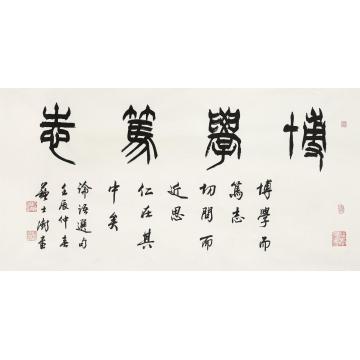 博學篤志
博學而
篤志
切問而
近思
仁在其
中矣
論語選句
壬辰仲春
蘇士澍書